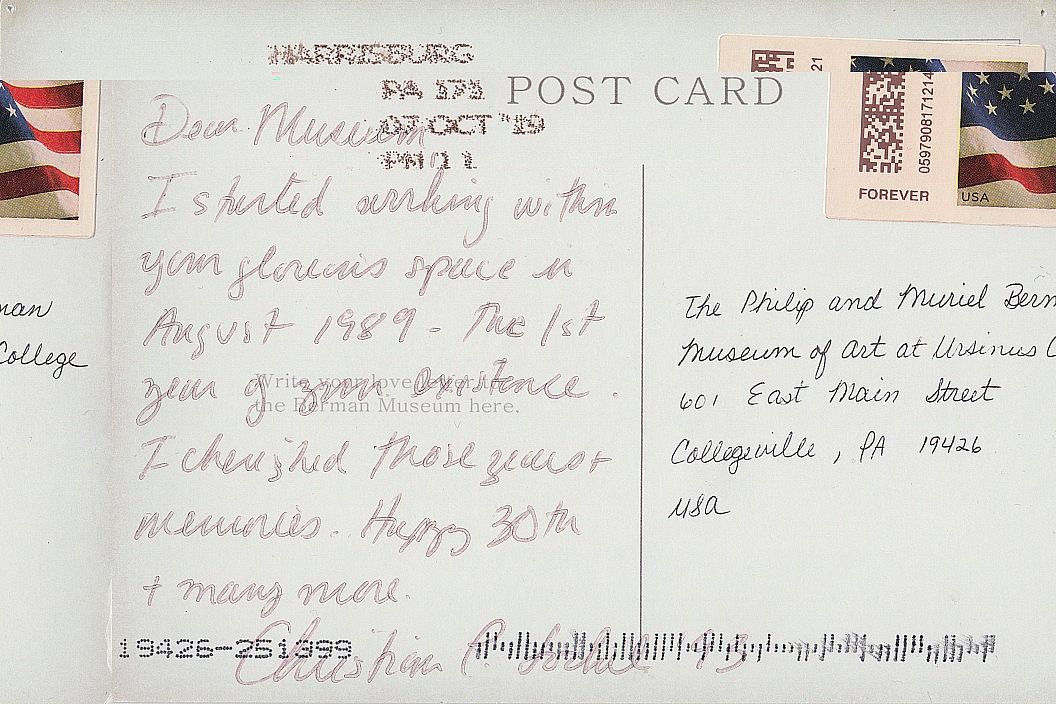 HARRISBURG
PA 171
07 OCT '19
PM 1 L
POST CARD
21
0597908171214
FOREVER
USA
Dear Museum
I started working within
your glorious space in
August 1989 - The 1st
year of your existence.
I cherished those years +
memories. Happy 30th
+ many more.
Christian P.
93
Write your love letter to
the Berman Museum here.
man
College
The Philip and Muriel Berm
Museum of Art at Ursinus C
601 East Main Street
Collegeville, PA 19426
USA
19426-251399